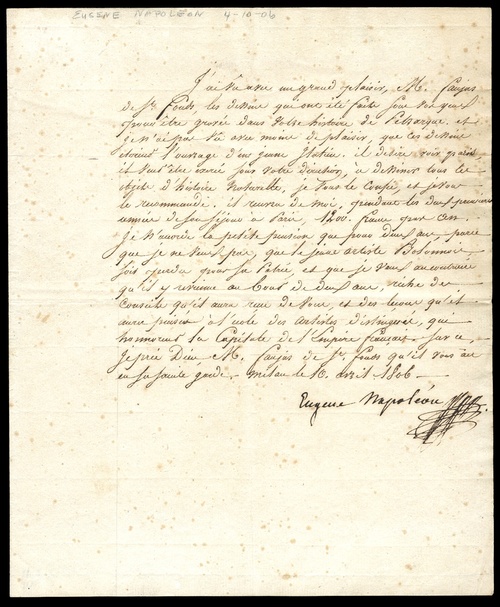 EUGENE NAPOLEON 4-10-06
J'ai vu avec un grand plaisir, M. faujas
de St. fonds les dessins qui ont été faits sous vos yeux
pour être gravés dans votre histoire de et
je n'ai pas vu avec moins de plaisir, que ces dessins
étoient l'ouvrage d'un jeune italien. il désire
et s'être exercé sous votre direction, a dessiner tous les
objets d'histoire naturelle, je vous le confie, et je vous
le recommande. il recevra de moi, pendant les deux premieres
années de son séjour à Paris, 1200. francs par an.
Je n'accorde la petite pension que pour deux ans, parce
que je ne veux pas, que le jeune artiste Bolonnois
soit perdu pour sa Patrie, et que je veux au contraire
qu'il y revienne au bout de deux ans, riche des
conseils qu'il aura reçu de vous, et des leçons qu'il
aura puisées a l'école des artistes distingués, qui
honorent la Capitale de l'Empire français. sur ce,
Je prie Dieu M. faujas de St. fonds qu'il vous ait
en sa sainte garde. Milan le 10. avril 1806.
Eugene Napoléon